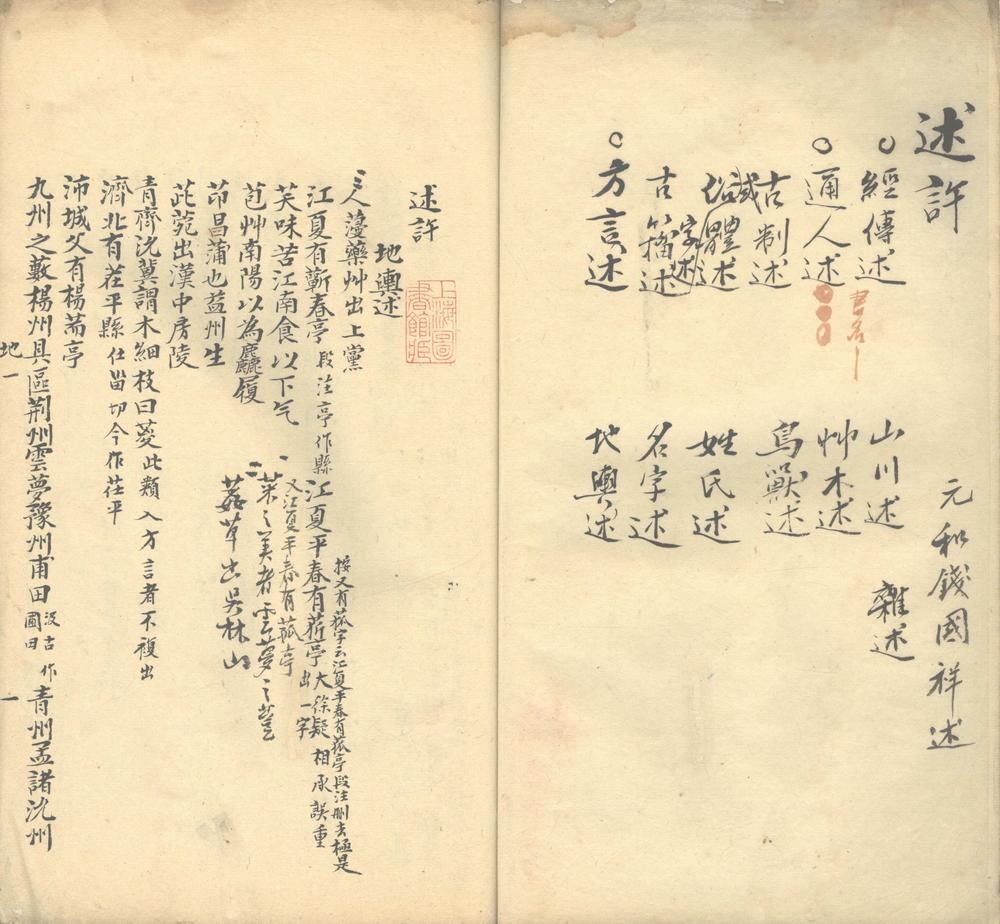 述許
元和錢國祥述
○經傳述
○通人述
古制述
或體述
俗字述
古籀述
○方言述
書名
山川述
艸木述
鳥獸述
姓氏述
名字述
地輿述
雜述
述許
地輿述
上海圖書館藏
人薓藥艸出上黨
江夏有蘄春亭 段注亭作縣 江夏平春有菥亭 大徐疑相承誤重出一字
按又有菰字云江夏平春有菰亭段注刪去極是
芺味苦江南食以下气
又江夏平春有菰亭
苞艸南陽以為麤履
菜之美者雲夢之䔇
茚昌蒲也益州生
葻草出吳林山
茈菀出漢中房陵
青齊沇冀謂木細枝曰蔆此類入方言者不複出
濟北有茬平縣 仕甾切今作茌平
沛城父有楊荋亭
九州之藪楊州具區荆州雲夢豫州甫田 汲古作圃田 青州孟諸沇州
地一
一